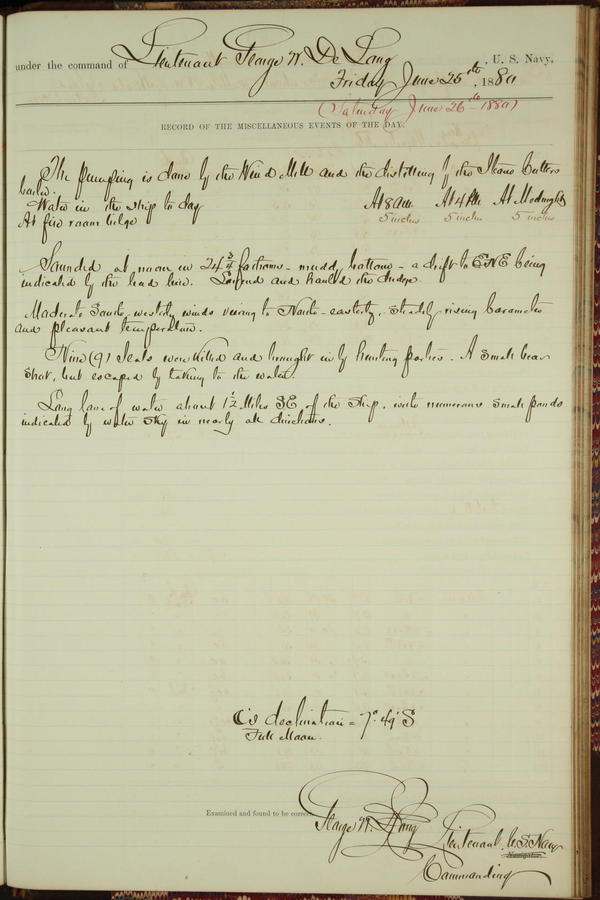 under the command of Lieutenant George W. De Long, U. S. Navy,
Friday June 25th, 1880
(Saturday June 26th 1880)
RECORD OF THE MISCELLANEOUS EVENTS OF THE DAY.
The pumping is done by the Wind Mill and the distilling by the Steam Cutters
boiler.
Water in the ship to day At 8 am At 4 PM At Midnight
At fire room bilge 5 inches 5 inches 5 inches
Sounded at noon in 24 3/4 fathoms - muddy bottom - a drift to ENE being
indicated by the lead line. Lowered and hauled the dredge.
Moderate South, westerly winds veering to North-easterly, steadily rising barometer
and pleasant temperature.
Nine (9) Seals were killed and brought in by hunting parties. A small bear
shot, but escaped by taking to the water.
Long lane of water about 1 1/2 Miles SE of the ship, with numerous small ponds
indicated by water sky in nearly all directions.
☾'s declination = 7° 49' S
Full Moon.
Examined and found to be correct.
George W. De Long Lieutenant, U.S. Navy
Navigator.
Commanding